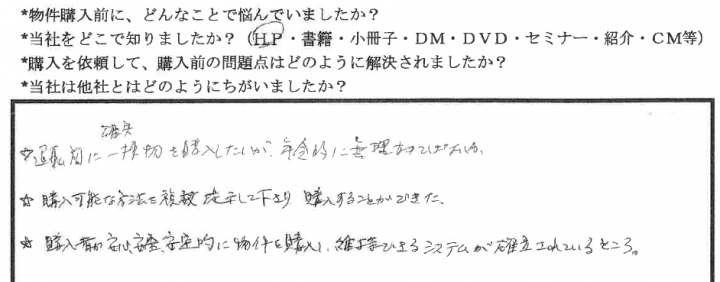 *物件購入前に、どんなことで悩んでいましたか？
*当社をどこで知りましたか？（HP・書籍・小冊子・DM・DVD・セミナー・紹介・CM等）
*購入を依頼して、購入前の問題点はどのように解決されましたか？
*当社は他社とはどのようにちがいましたか？
確実
☆退職前に一棟物を購入したいが、年令的に無理
☆ 購入可能な方法を複数提示して下さり購入することができた。
☆ 購入者が安心、安全、安定的に物件を購入し、維持できるシステムが確立されているところ。